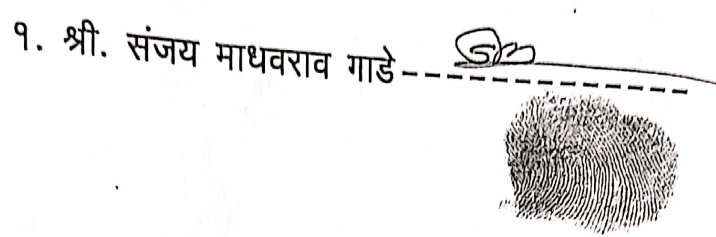 १. श्री. संजय माधवराव गाडे